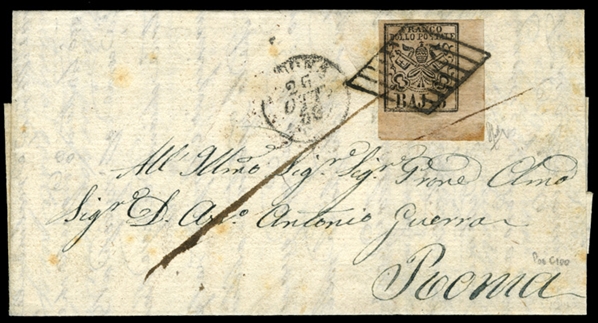 FRANCO
BOLLO POSTALE
BAJ. 5
25
OTT
All' Illmo Sigr Sigr Prone Clmo
Sigr D. Antonio Guerra
Roma